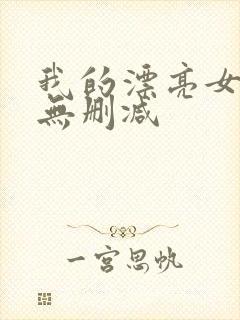 我的漂亮女
無删减
一宫思帆